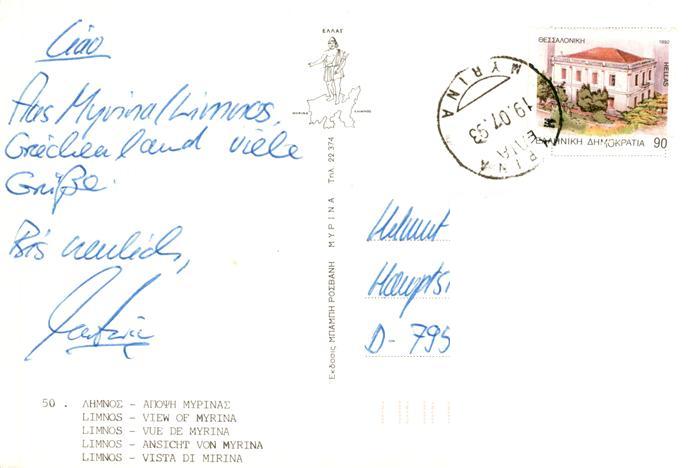 Ciao
Aus Myrina/Limnos,
Griechenland viele
Grüße.
Bis neulich,
50 . ΛΗΜΝΟΣ - ΑΠΟΨΗ ΜΥΡΙΝΑΣ
LIMNOS - VIEW OF MYRINA
LIMNOS - VUE DE MYRINA
LIMNOS - ANSICHT VON MYRINA
LIMNOS - VISTA DI MIRINA
ΕΛΛΑΣ
Εκδοσις ΜΠΑΜΠΗ ΡΟΣΒΑΝΗ ΜΥΡΙΝΑ Τηλ. 22 374
ΘΕΣΣΑΛΟΝΙΚΗ 1992
HELLAS
ΕΛΛΗΝΙΚΗ ΔΗΜΟΚΡΑΤΙΑ 90
MYRINA
19.07.93
Helmut
D-795